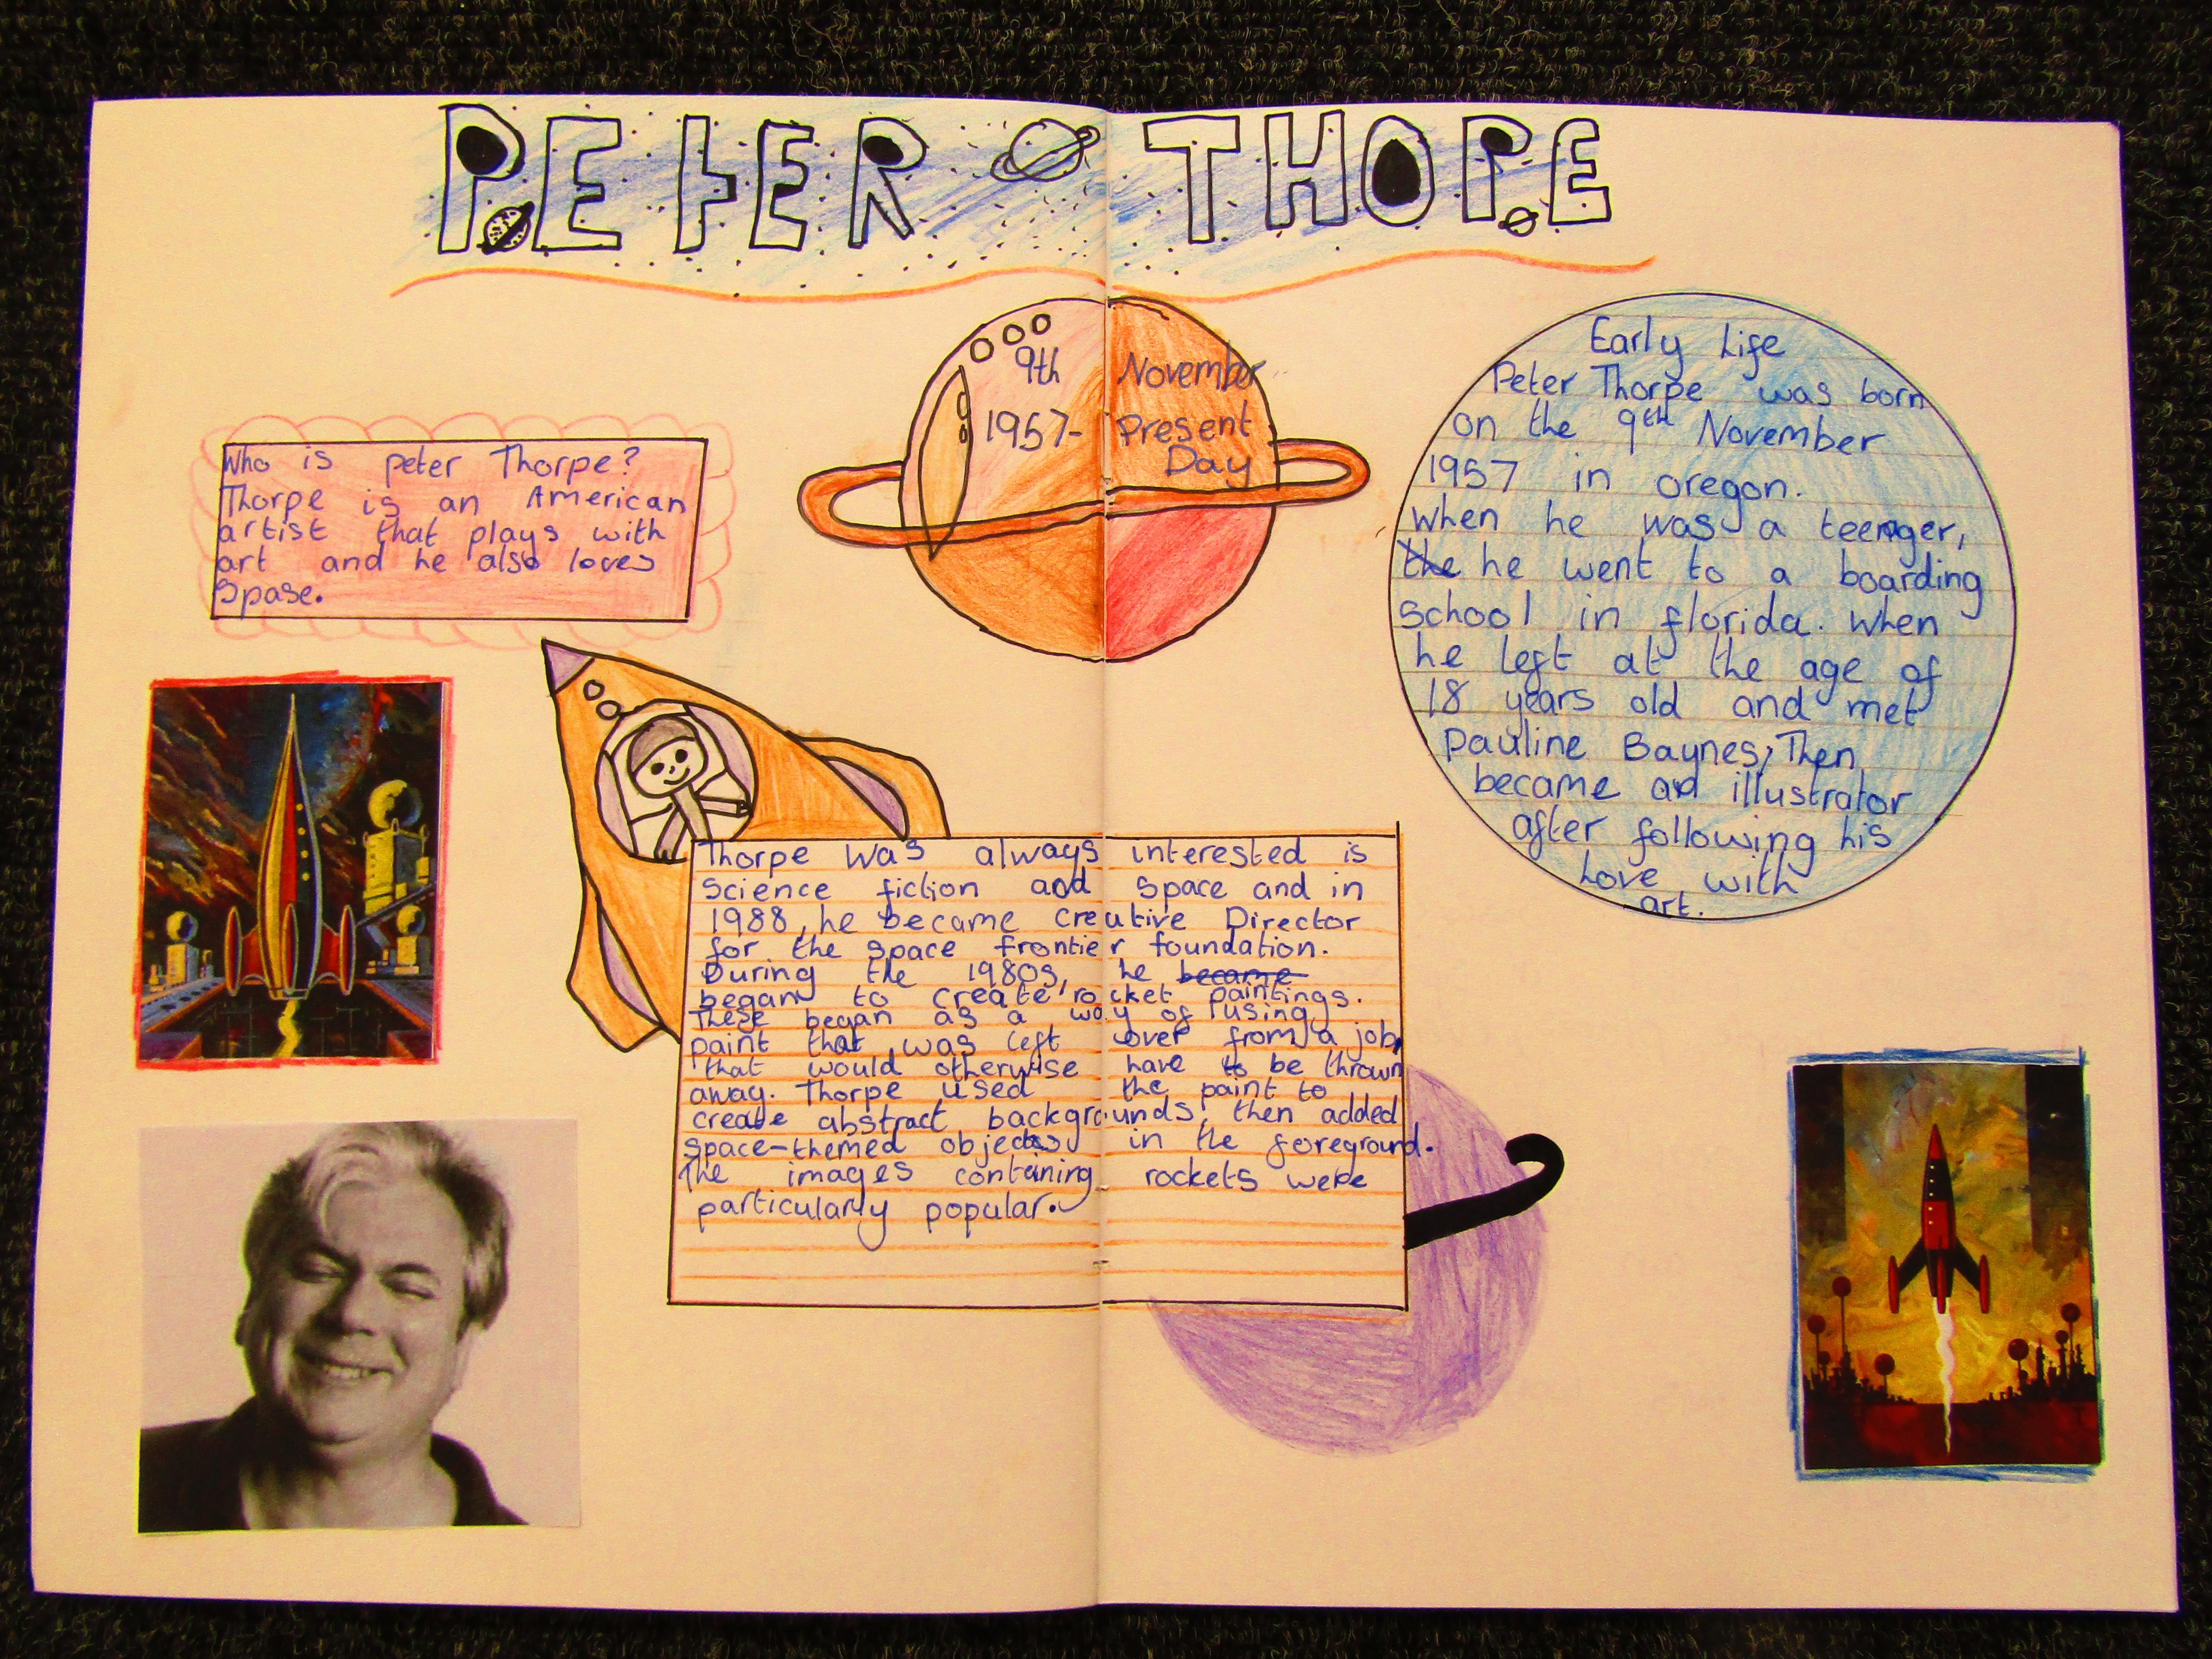 PETER THOPE
9th November
1957- Present
Day
Who is peter Thorpe?
Thorpe is an American
artist that plays with
art and he also loves
Spase.
Early Life
Peter Thorpe was born
on the 9th November
1957 in oregon.
When he was a teenager,
the he went to a boarding
school in florida. When
he left at the age of
18 years old and met
Pauline Baynes, Then
became an illustrator
after following his
Love with
art.
Thorpe was always interested is
Science fiction and space and in
1988, he became creative Director
for the space frontier foundation.
During the 1980s, he became
began to create rocket paintings.
These began as a way of using
paint that was left over from a job,
that would otherwise have to be thrown
away. Thorpe used the paint to
create abstract backgrounds, then added
space-themed objects in the foreground.
The images containing rockets were
particularly popular.